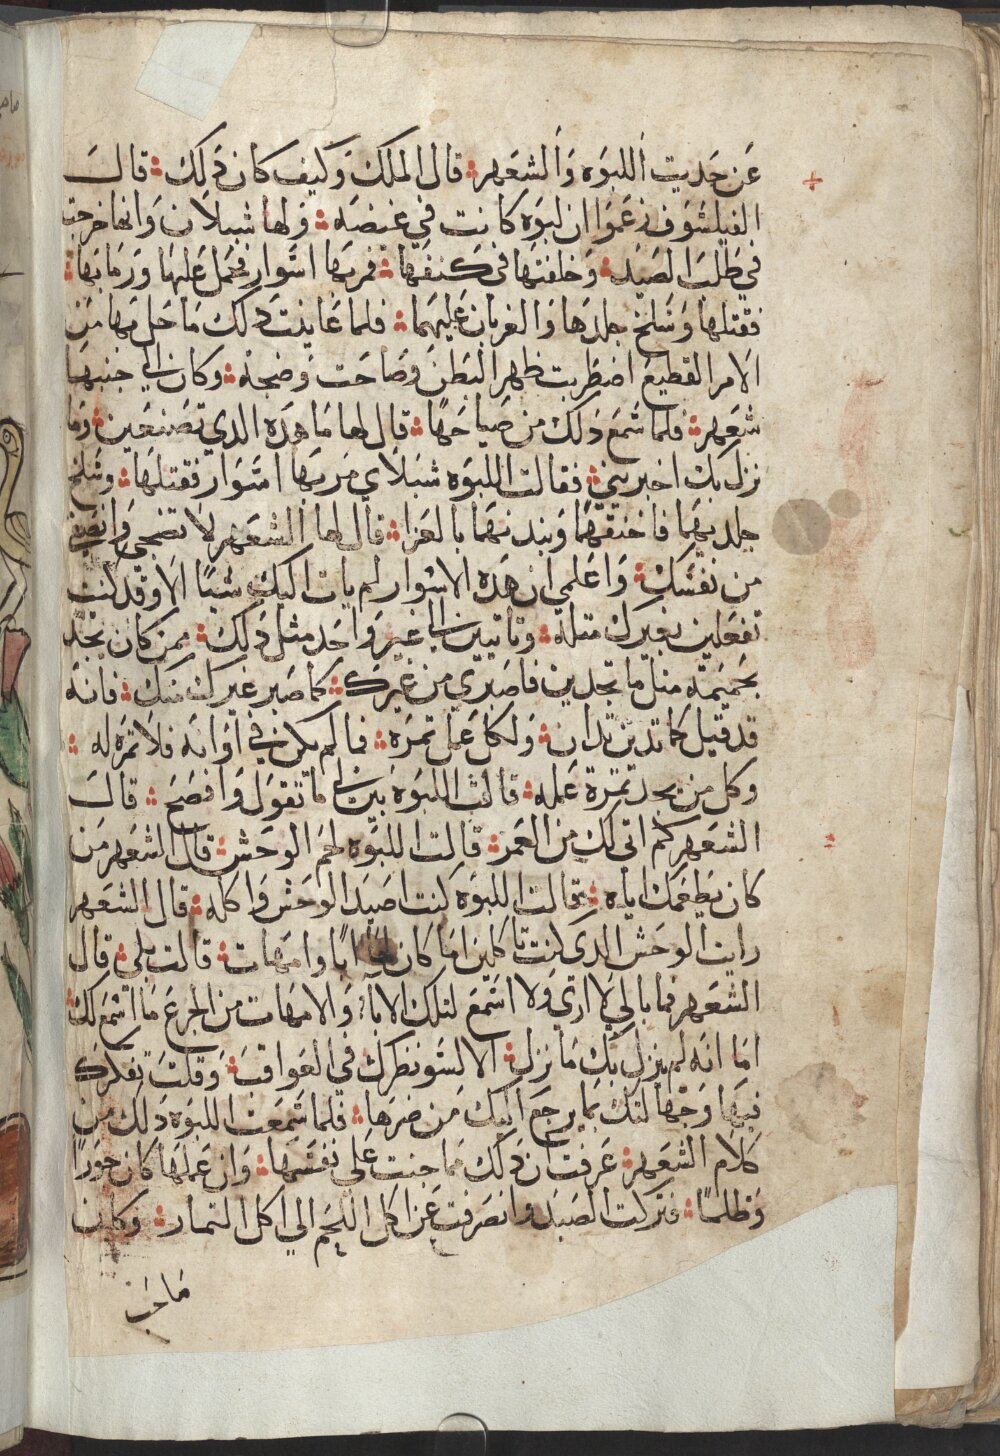 عَن حَديت اللبَوَه وَالشعَهر قال الملك وَكيف كان دَلك قالَ
الفيلسَوف زعَمَوَا ان لبوَه كانت في غيضَه وَلها شبلاَن وَانها خرجت
في طلبَ الصَيَد وَخلفتهَا في كنفهَا فمربهَا اسَوار فحمَل عَليهَا وَرَمَابهَا
فقتلهَا وَسَلخ جلدهَا وَالغربان عَليهمَا فلما عَاينت دَلك مَا حَل بهَا مَن
الامر القطيع اضطربت ظهر البَطنَ وَصَاحَت وَضجت وَكان الي جنبهَا
شعَهر فلما سَمَع دَلك من صَيَاحَهَا قال لهَا مَا هدَه الدي تصَنعَين وَمَا
نزل بك اخبريني فقالت اللبوَه شبلاَي مَر بهَا اسَوَار فقتلهَا وَسَلخ
جلديهمَا فاخنقهمَا وَبندهمَا بالعَزا قال لها الشعَهر لاَ تضجي وَانصفي
من نفسَك وَاعَلمي ان هَدَه الاسَوار لم يات اليك شيَا الاَ وَقد كنت
تفعَلين بغيرك مَتله وَتاتيين الي غير وَاحَد مثل دَلك ممن كان يجد
بحَميمَه متل مَا تجدين فاصبري من غيرك كمَا صَبر غيرك منك فانه
قد قيل كمَا تدَين تدان وَلكل عَمل تمَرَه فما لم يكن في اوَانه فلاَ تمَرَه له
وَكل من يجد تمَرة عَمله قالت اللبوَه بين لي مَا تقوَل وَافصَح قالَ
الشعَهر كم اتي لك من العَمر قالت اللبَوَه لحَم الوَحَش قال الشعَهر مَن
كان يَطعَمَك اياه قالت اللبَوَه كنت اصَيَد الوَحَش وَاكله قال الشعَهر
رايت الوَحَش الدي كنت تاكلين امَا كان لهَا ابَا وَامَهَات قالت بلي قال
الشعَهر فما بالي لاَ ارَي وَلاَ اسَمَع لتلك الابَا وَالامَهَات من الجزعَ مَا اسَمَع لك
امَا انه لم ينزل بَك مَا نزل الاَ لسَو نظرك في العَواقبَ وَقلتَ تفكرك
فيهَا وَجَهَالتك بمَا يرجع اليك مَن ضرهَا فلما سَمَعَت اللبوَه دَلك من
كلاَم الشعَهر عَرفت ان دَلك مَا جنت عَلي نفسَهَا وَان عَملهَا كان جوَرًا
وَظلمًا فتركت الصَيَد وَانصَرفت عَن اكل اللحَم الي اكل التمار وَكان
مَاحَب